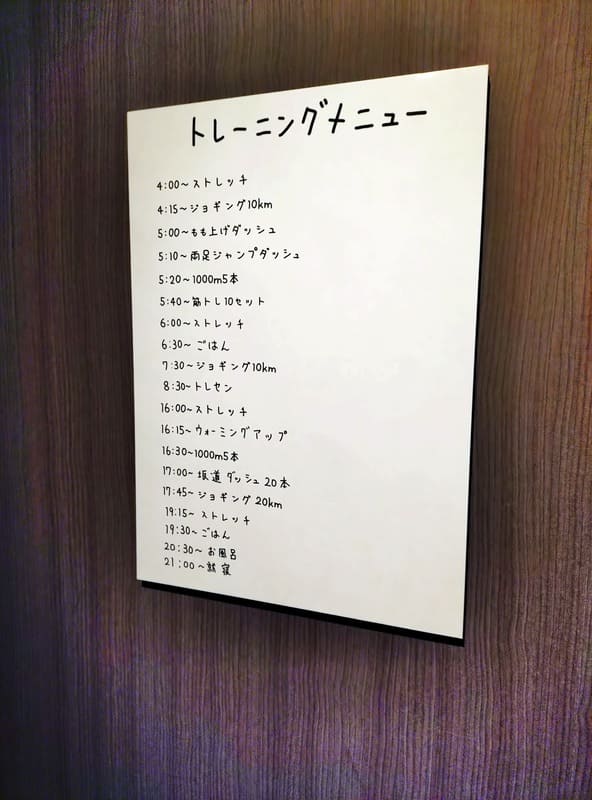 トレーニングメニュー
4:00～ストレッチ
4:15～ジョギング10km
5:00～もも上げダッシュ
5:10～両足ジャンプダッシュ
5:20～1000m5本
5:40～筋トレ10セット
6:00～ストレッチ
6:30～ごはん
7:30～ジョギング10km
8:30～トレセン
16:00～ストレッチ
16:15～ウォーミングアップ
16:30～1000m5本
17:00～坂道ダッシュ20本
17:45～ジョギング20km
19:15～ストレッチ
19:30～ごはん
20:30～お風呂
21:00～就寝